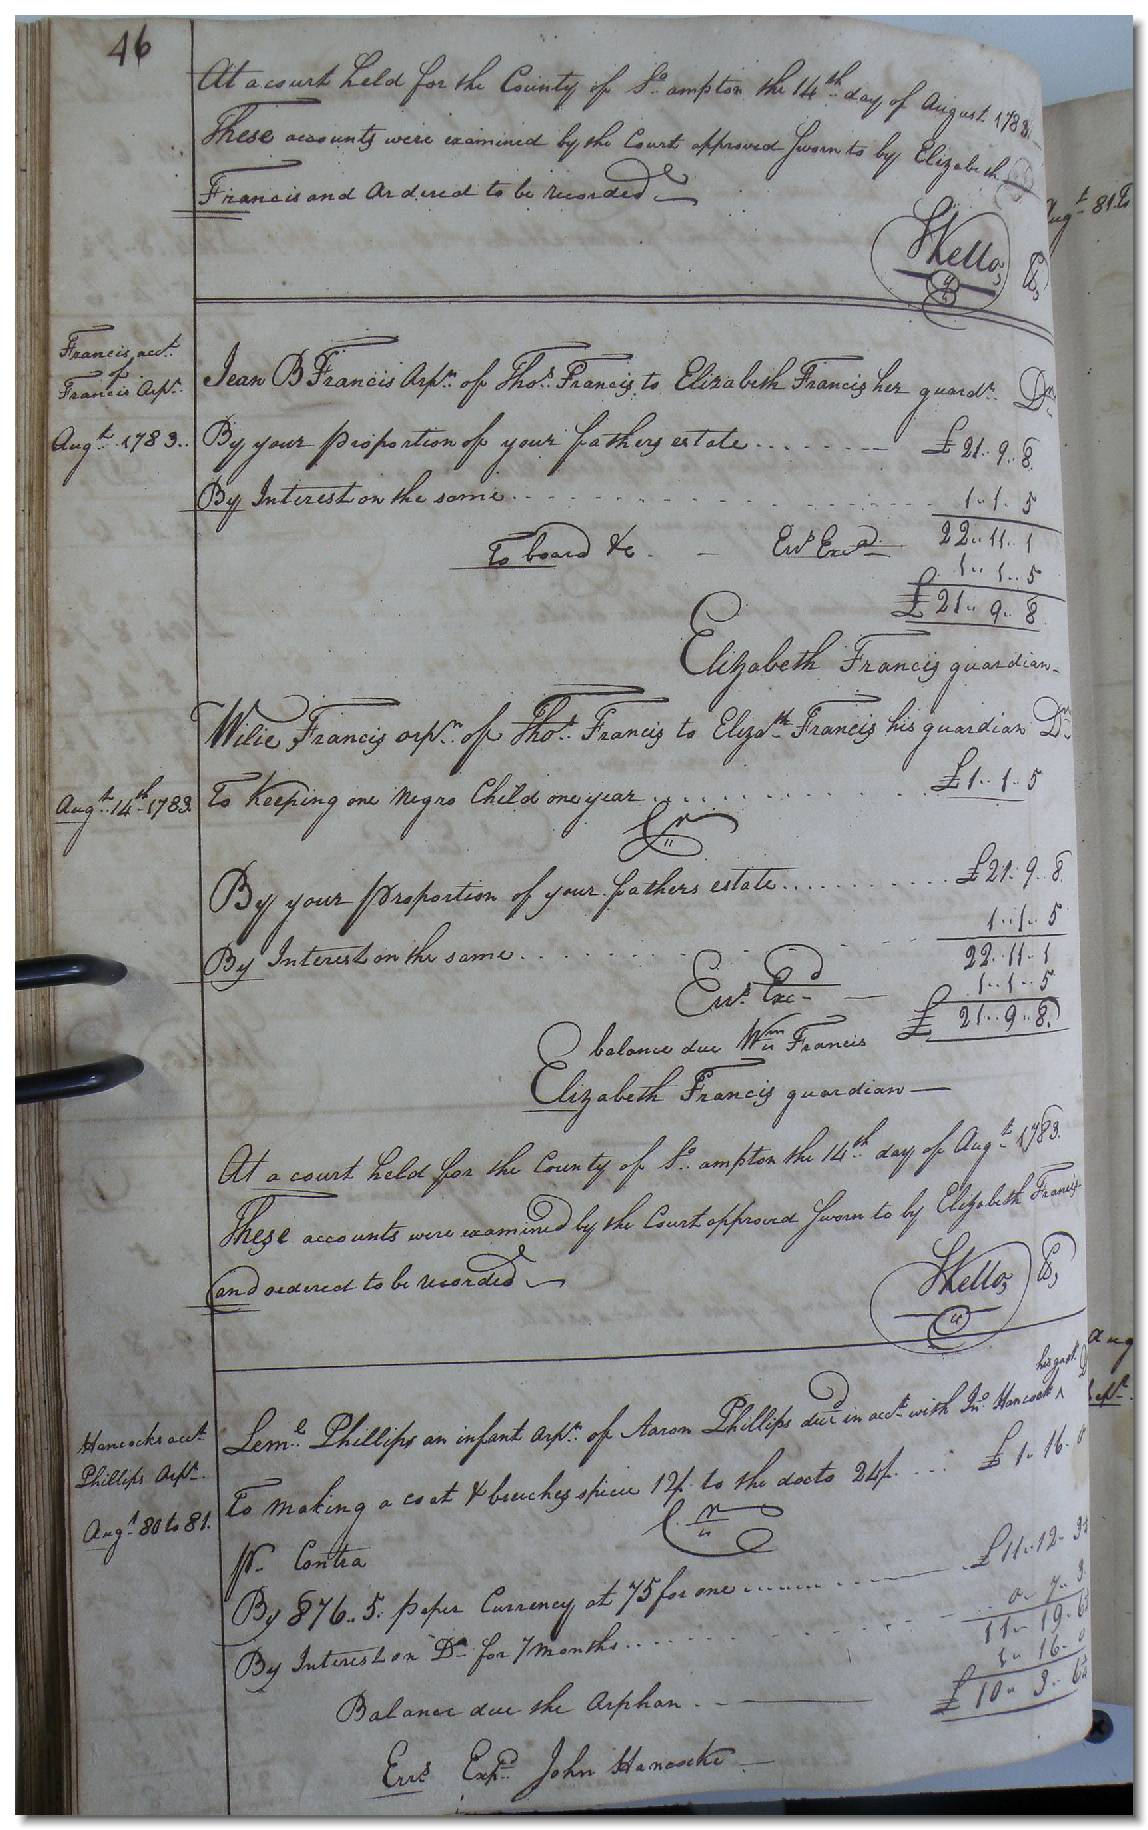 46
At a court held for the County of So. ampton the 14th day of August 1783.
These accounts were examined by the Court approved Sworn to by Elizabeth
Francis and Ordered to be recorded
SKello
Augt. 81. To
Francis acct.
of
Francis Orpn.
Jean B Francis Orpn. of Thos. Francis to Elizabeth Francis her guardn. Dr.
Augt. 1783..
By your proportion of your fathers estate £21..9..8
By Interest on the same 1..1..5
Errs. Excd. 22..11..1
To board &c. 1..1..5
£21..9..8
Elizabeth Francis guardian
Wilie Francis orpn. of Thos. Francis to Elizath. Francis his guardian Dr.
Augt. 14th. 1783.
To Keeping one Negro Child one year £1..1..5
Cr
By your proportion of your fathers estate £21..9..8
By Interest on the same 1..1..5
22..11..1
Errs. Excd. 1..1..5
£21..9..8.
balance due Wm. Francis
Elizabeth Francis guardian
At a court held for the County of So. ampton the 14th day of Augt. 1783.
These accounts were examined by the Court approved Sworn to by Elizabeth Francis
and ordered to be recorded
SKello
Aug
Sept.
Hancocks acct.
Phillips Orpn.
his guard.
Leml. Phillips an infant Orpn. of Aaron Phillips decd. in acct. with Jno. Hancock ^
Augt. 80 to 81.
To making a coat & breeches 12/. to the docto 24/. £1..16..0
Cr
Pr. Contra
By 876..5. paper Currency at 75 for one £11..12..
By Interest on Do. for 7 months 0..7..3
11..19..6
1..16..0
Balance due the Orphan £10..3..6
Errs. Expd. John Hancocke